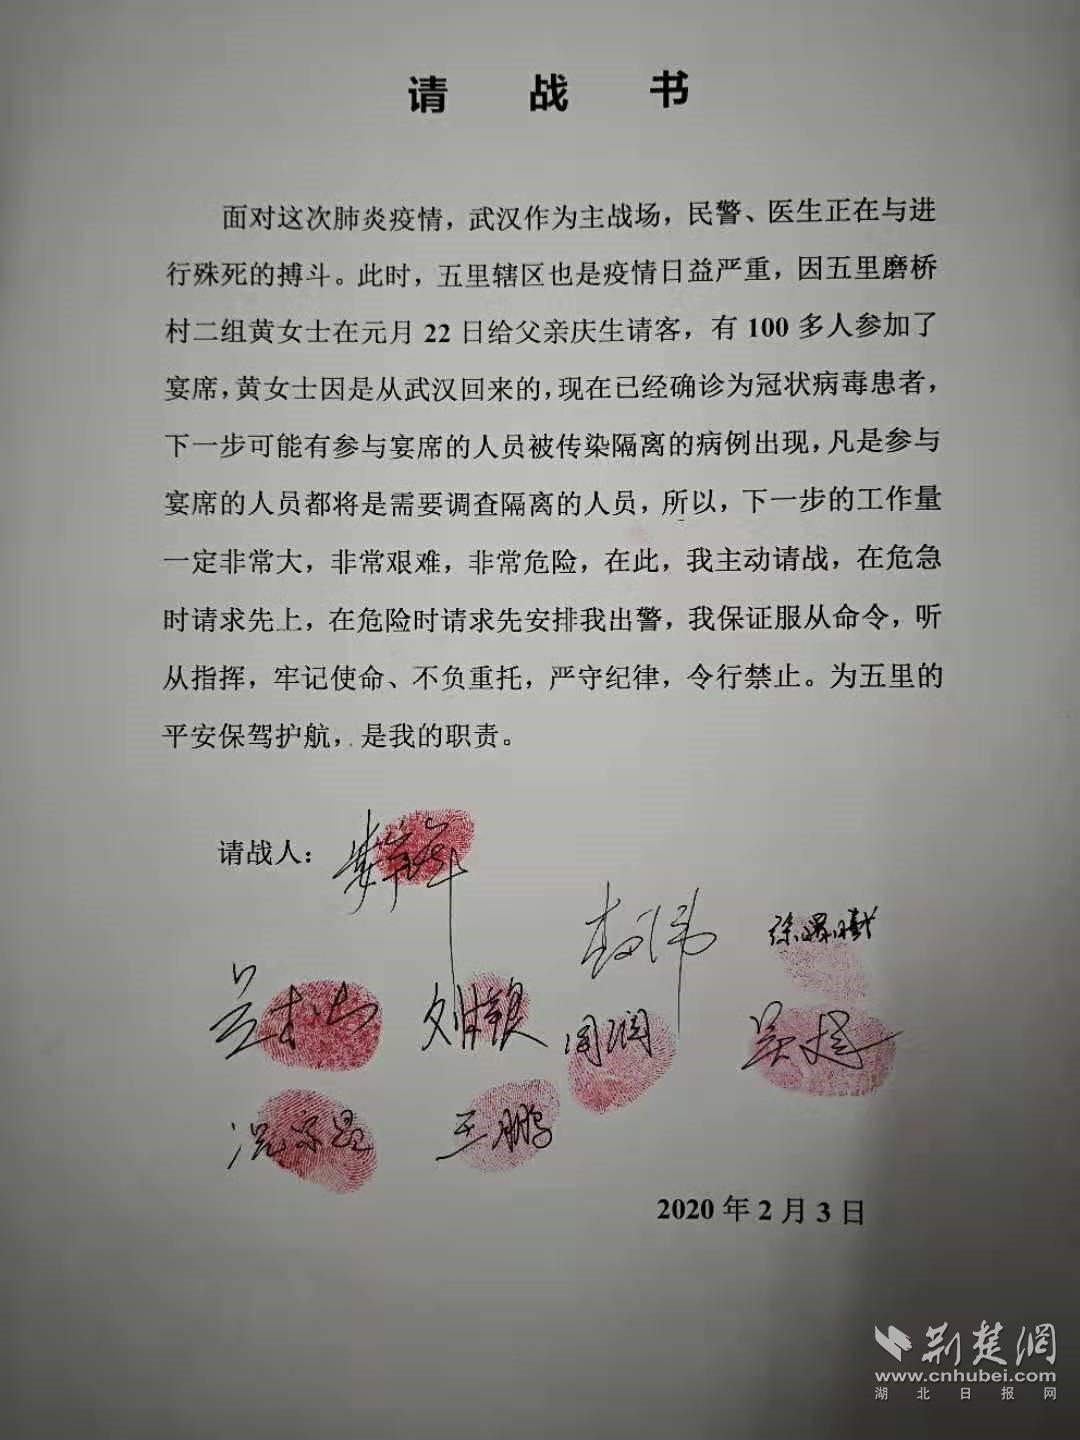 请战书
面对这次肺炎疫情，武汉作为主战场，民警、医生正在与进
行殊死的搏斗。此时，五里辖区也是疫情日益严重，因五里磨桥
村二组黄女士在元月 22 日给父亲庆生请客，有 100 多人参加了
宴席，黄女士因是从武汉回来的，现在已经确诊为冠状病毒患者，
下一步可能有参与宴席的人员被传染隔离的病例出现，凡是参与
宴席的人员都将是需要调查隔离的人员，所以，下一步的工作量
一定非常大，非常艰难，非常危险，在此，我主动请战，在危急
时请求先上，在危险时请求先安排我出警，我保证服从命令，听
从指挥，牢记使命、不负重托，严守纪律，令行禁止。为五里的
平安保驾护航，是我的职责。
请战人：
刘 银 周润 吴
王鹏
2020 年 2 月 3 日
荆楚网
www.cnhubei.com
湖北日报网